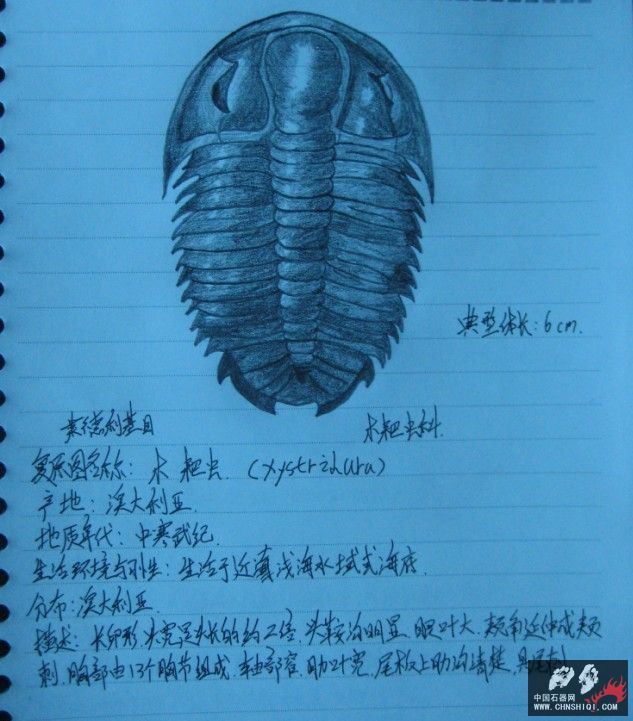 典型体长:6cm.
莱德利基目 木耙虫科.
复原图名称: 木耙虫. (Xystridura)
产地: 澳大利亚.
地质年代: 中寒武纪.
生活环境与习性: 生活于近岸浅海水域或海底.
分布: 澳大利亚.
描述: 长卵形.头宽是头长的约2倍.头鞍沟明显.眼叶大.颊角延伸成颊
刺.胸部由13个胸节组成.轴部窄.肋叶宽.尾板上肋沟清楚.具尾刺.
中国石器网
WWW.CHNSHIQI.COM